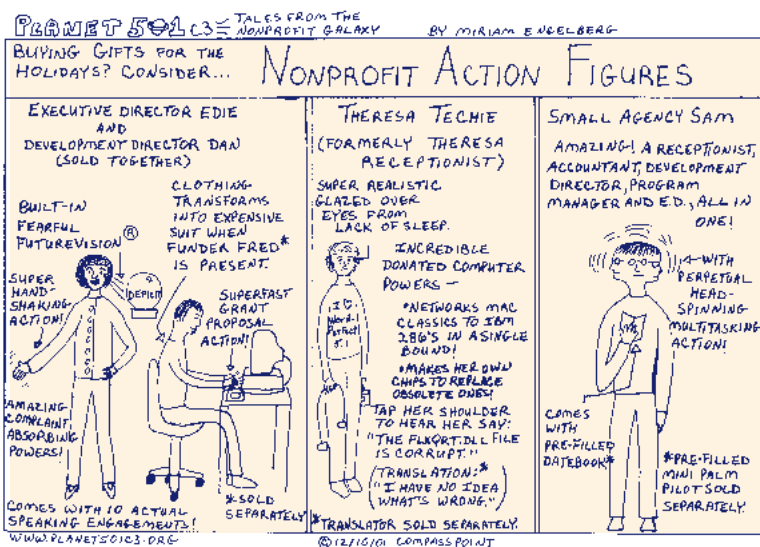 PLANET 501C3
TALES FROM THE
NONPROFIT GALAXY
BY MIRIAM ENGELBERG
BUYING GIFTS FOR THE
HOLIDAYS? CONSIDER...
NONPROFIT ACTION FIGURES
EXECUTIVE DIRECTOR EDIE
AND
DEVELOPMENT DIRECTOR DAN
(SOLD TOGETHER)
BUILT-IN
FEARFUL
FUTUREVISION®
CLOTHING
TRANSFORMS
INTO EXPENSIVE
SUIT WHEN
FUNDER FRED*
IS PRESENT.
SUPER
HAND-
SHAKING
ACTION!
DEFICIT
SUPERFAST
GRANT
PROPOSAL
ACTION!
AMAZING
COMPLAINT
ABSORBING
POWERS!
COMES WITH 10 ACTUAL
SPEAKING ENGAGEMENTS!
*SOLD
SEPARATELY
THERESA TECHIE
(FORMERLY THERESA
RECEPTIONIST)
SUPER REALISTIC
GLAZED OVER
EYES FROM
LACK OF SLEEP.
INCREDIBLE
DONATED COMPUTER
POWERS —
•NETWORKS MAC
CLASSICS TO IBM
286'S IN A SINGLE
BOUND!
•MAKES HER OWN
CHIPS TO REPLACE
OBSOLETE ONES!
I ♡
Word-
Perfect
5.1
TAP HER SHOULDER
TO HEAR HER SAY:
"THE FLXQRT.DLL FILE
IS CORRUPT."
(TRANSLATION:*
"I HAVE NO IDEA
WHAT'S WRONG.")
*TRANSLATOR SOLD SEPARATELY.
SMALL AGENCY SAM
AMAZING! A RECEPTIONIST,
ACCOUNTANT, DEVELOPMENT
DIRECTOR, PROGRAM
MANAGER AND E.D., ALL IN
ONE!
WITH
PERPETUAL
HEAD-
SPINNING
MULTITASKING
ACTION!
COMES
WITH
PRE-FILLED
DATEBOOK*
*PRE-FILLED
MINI PALM
PILOT SOLD
SEPARATELY.
WWW.PLANET501C3.ORG
©12/10/01 COMPASSPOINT